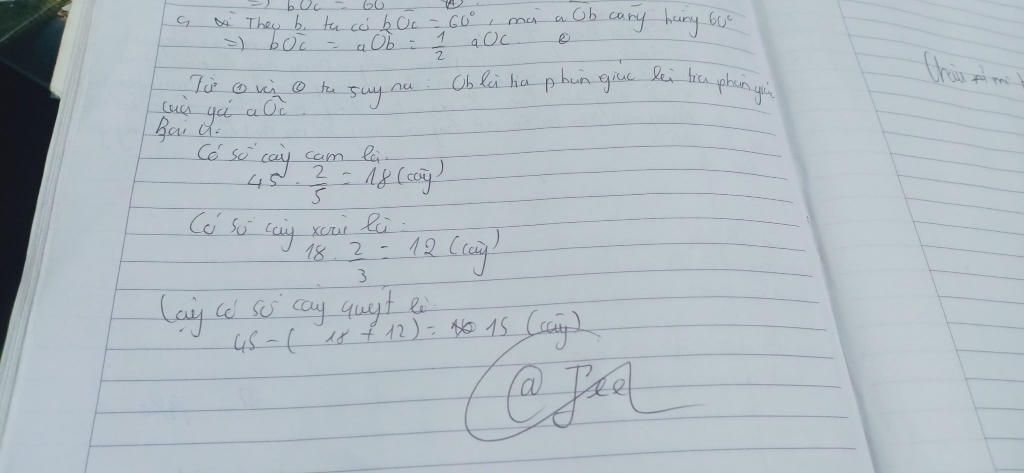 =) bOc = 60
c, Theo b, ta có bÔc = 60°, mà aÔb cũng bằng 60°
=) bÔc = aÔb = 1/2 aOc ②
Từ ① và ② ta suy ra: Ob là tia phân giác là tia phân giác
của góc aÔc.
Bài 2:
Có số cây cam là:
45 . 2/5 = 18 (cây)
Có số cây xoài là:
18 . 2/3 = 12 (cây)
cây có số cây quýt là:
45 - ( 18 + 12) = 15 (cây)
@ Jeel